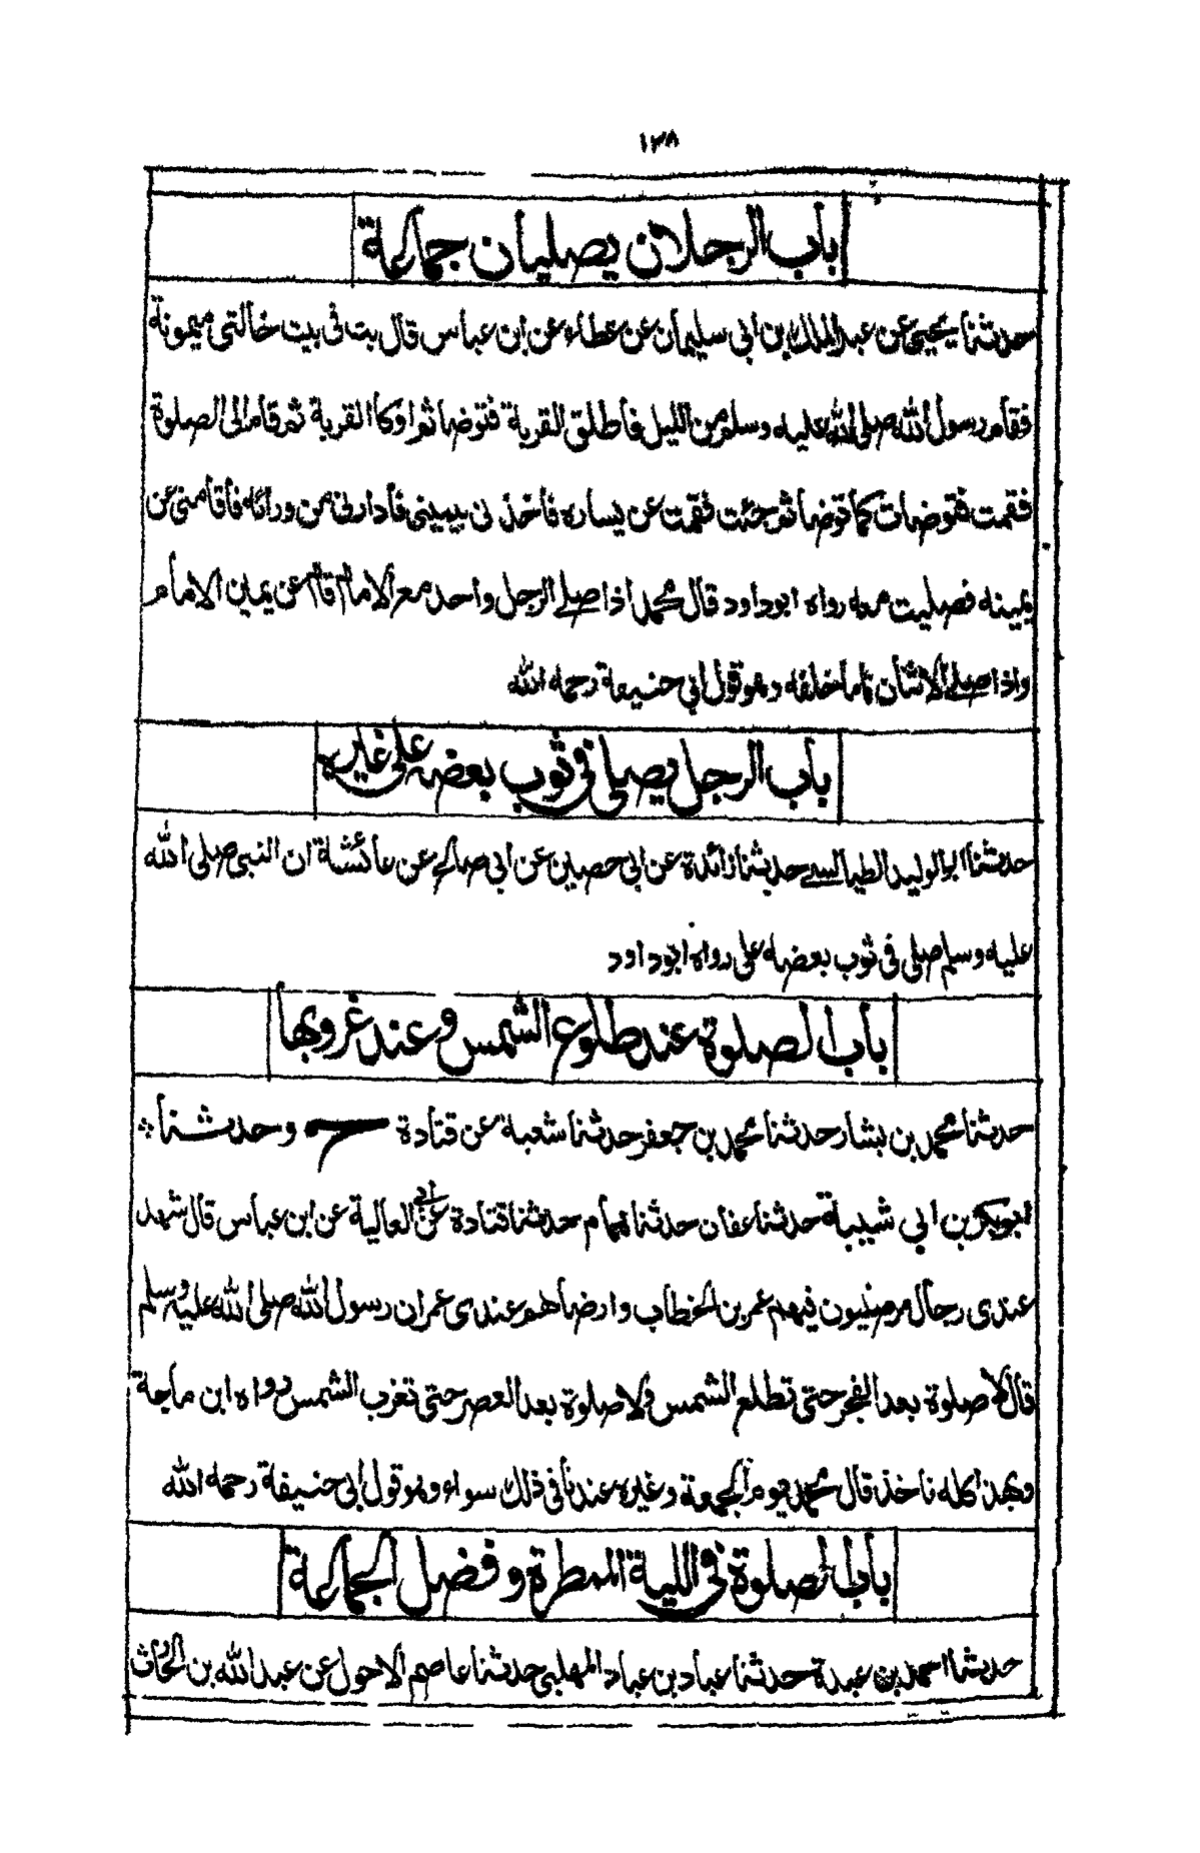 ١٣٨
باب الرجلان يصليان جماعة
حدثنا يحيى عن عبد الملك بن ابي سليمان عن عطاء عن ابن عباس قال بت في بيت خالتي ميمونة
فقام رسول الله صلى الله عليه وسلم من الليل فاطلق القربة فتوضا ثم اوكا القربة ثم قام الى الصلوة
فقمت فتوضات كما توضا ثم جئت فقمت عن يساره فاخذ ني بيميني فادارني من ورائه فاقامني عن
يمينه فصليت معه رواه ابوداود قال محمد اذا صلے الرجل واحد مع الامام اقام عن يمين الامام
واذا صلے الاثنان قاما خلفه وهو قول ابي حنيفة رحمه الله
باب الرجل يصلي في ثوب بعضه على غيره
حدثنا ابو الوليد الطيالسے حدثنا زائدة عن ابي حصين عن ابي صالح عن عائشة ان النبي صلى الله
عليه وسلم صلى في ثوب بعضه على رواه ابوداود
باب الصلوة عند طلوع الشمس وعند غروبها
حدثنا محمد بن بشار حدثنا محمد بن جعفر حدثنا شعبة عن قتادة ح وحدثنا
ابوبكر بن ابي شيبة حدثنا عفان حدثنا همام حدثنا قتادة عن ابي العالية عن ابن عباس قال شهد
عندي رجال مرضيون فيهم عمر بن الخطاب وارضاهم عندي عمر ان رسول الله صلى الله عليه وسلم
قال لا صلوة بعد الفجر حتى تطلع الشمس ولا صلوة بعد العصر حتى تغرب الشمس رواه ابن ماجة
وبهذا كله ناخذ قال محمد يوم الجمعة وغيره عندنا في ذلك سواء وهو قول ابي حنيفة رحمه الله
باب الصلوة في الليلة الممطرة وفضل الجماعة
حدثنا احمد بن عبدة حدثنا عباد بن عباد المهلبي حدثنا عاصم الاحول عن عبد الله بن الحارث